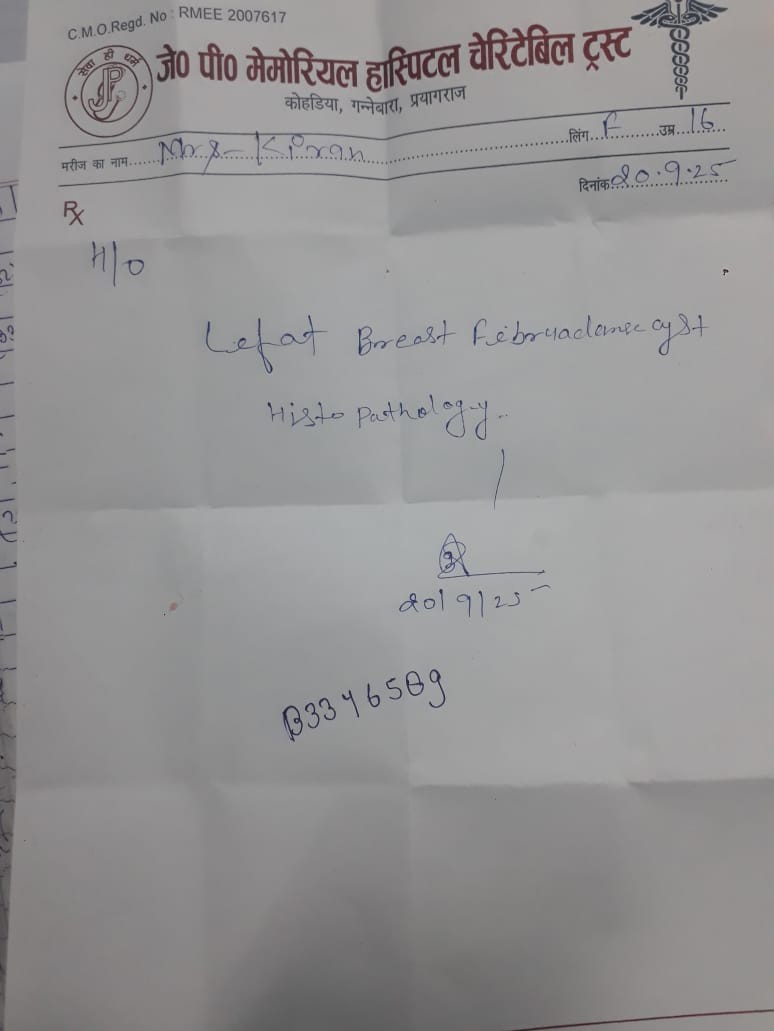 C.M.O.Regd. No : RMEE 2007617
सेवा ही धर्म
जे० पी० मेमोरियल हास्पिटल चेरिटेबिल ट्रस्ट
कोहडिया, गन्नेबारा, प्रयागराज
मरीज का नाम......Mrs - Kiran......लिंग...F......उम्र...16
दिनांक 20.9.25
Rx
H/O
Lefat Breast Fibroadenec cyst
Histo Pathology..
20/9/25
B3346589